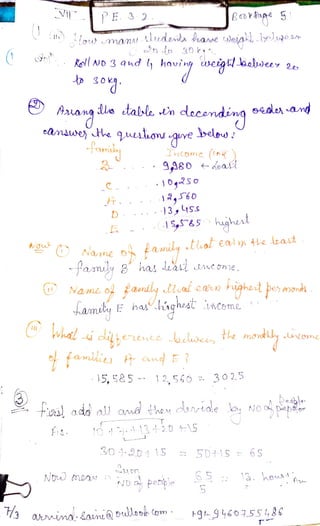 P E. 3 2. Book Page 5
How many students have weight between
20 to 30 kg.
Roll NO 3 and 4 having weight between 20
to 30kg.
② Arrang the table in decending order and
answer the question give below:
family Income
B 9,980 ← least
C. 10,250
A. 12,560
D. 13,455
E. 15,585 highest
① Name of family that earn the least
family B has least income.
② Name of family that earn highest per month.
family E has highest income
③ What is difference between the monthly income
of families A and E?
15,585 - 12,560 = 3025
③ first add all and then devide by No of people
30+20+15 = 50+15 = 65
Now mean = Sum / No of people 65 / 5 = 13. hours Ans
arvind.saini@outlook.com +91 9460755486